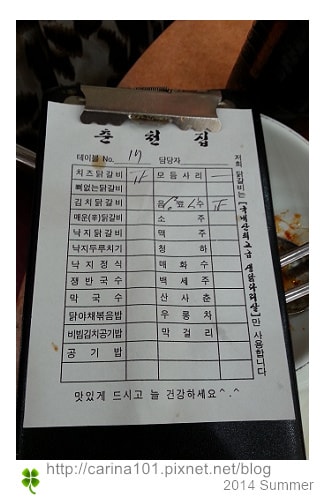 춘천집
테이블 No. 17 담당자
치즈닭갈비 모듬사리 一
뼈없는닭갈비
김치닭갈비 음료수
매운(辛)닭갈비 소주
낙지닭갈비 맥주
낙지두루치기 청하
낙지정식 매화수
쟁반국수 백세주
막국수 산사춘
닭야채볶음밥 우롱차
비빔김치공기밥 막걸리
공기밥
저희 닭갈비는 [국내산최고급 생닭다리살]만 사용합니다
맛있게 드시고 늘 건강하세요^.^
http://carina101.pixnet.net/blog
2014 Summer